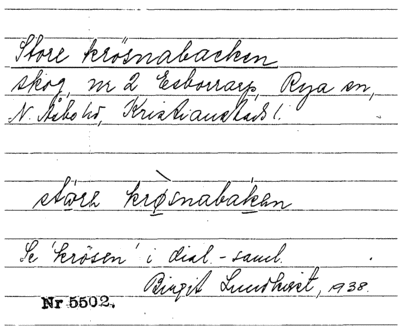 Store krösnabacken
skog, nr 2 Esborrarp, Rya sn,
N. Åsbo hd, Kristianstads l.
støre krø̀snabaken
Se 'krösen' i dial.-saml.
Birgit Lundkvist, 1938.
Nr 5502.